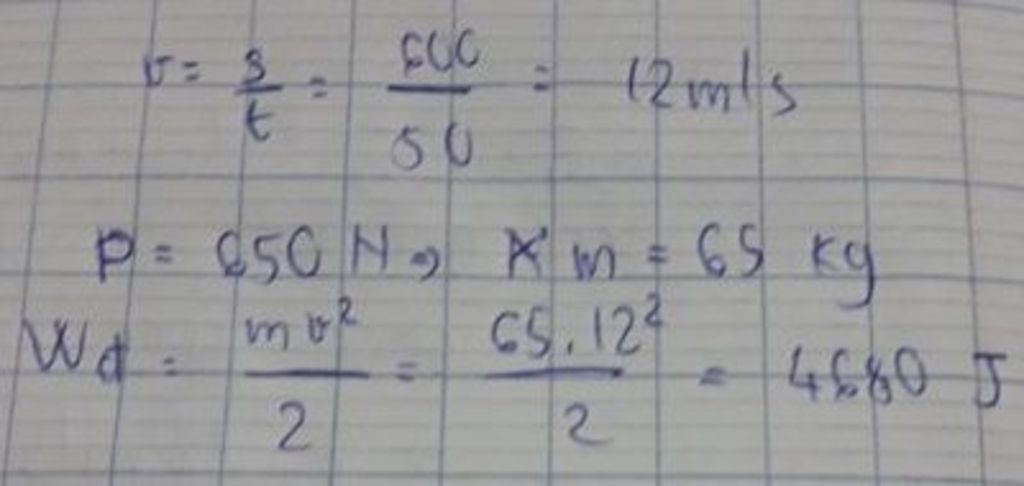 v = s/t = 600/50 = 12 m/s
P = 650 N => m = 65 kg
Wđ = mv²/2 = 65.12²/2 = 4680 J